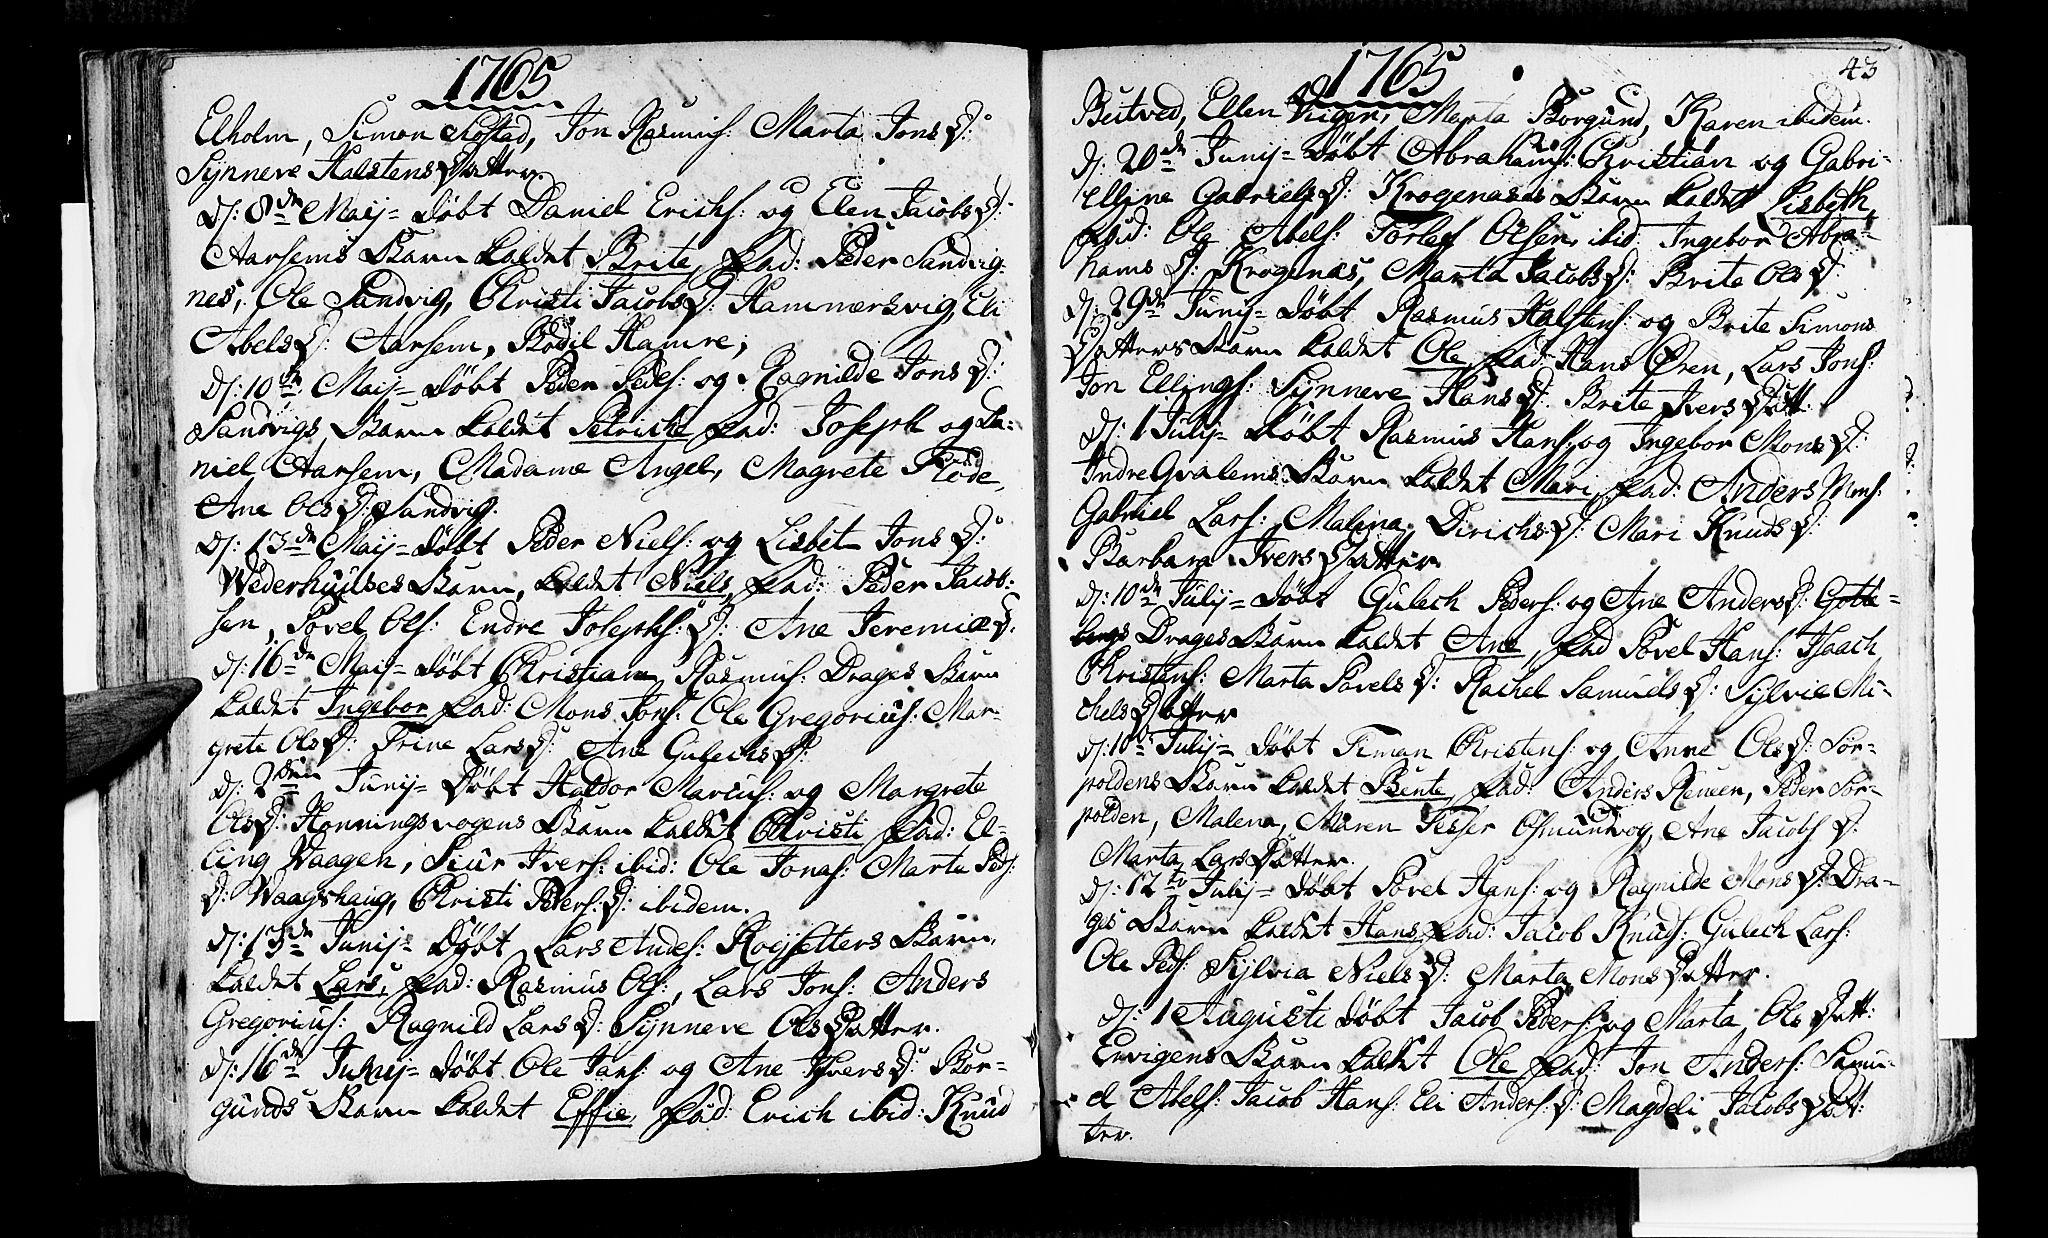 1765
Elholm, Simon Skostad, Jon Rasmus: Marta Jons D:
Synneve Halstens Datter.
D: 8de Maij = Döbt Daniel Erichs: og Elen Jacobs D:
Aarsems Barn kaldet Brite, fad: Peder Sandvig-
nes, Ole Sandvig, Christi Jacobs D: Hamnersvig, Eli
Abels D: Aarsem, Bodil Hamre,
D: 10de Maij = Döbt Peder Peds: og Ragnilde Jons D:
Sandvigs Barn kaldet Petriche fad: Joseph og Da-
niel Aarsem, Madame Angel, Magrete Flöde,
Ane Ols D: Sandvig.
D: 13de Maij = Döbt Peder Niels: og Lisbet Jons D:
Wederhuuses Barn, kaldet Niels, fad: Peder Jacob:
sen, Povel Ols: Endre Josephs: D: Ane Jeremiæ D:
D: 16de Maij = Döbt Christian Rasmus: Drages Barn
kaldet Ingebor fad: Mons Jons: Ole Gregorius: Mar-
grete Ols D: Trine Lars D: Ane Gulechs D:
D: 2den Junij = Döbt Haldor Marcus: og Margrete
Ols D: Honningsvogens Barn kaldet Christi fad: El-
ling Vaagen, Siur Ivers: ibid: Ole Jonas: Marta Peds:
D: Waagshaug, Christi Peders: D: ibidem.
D: 13de Junij = Döbt Lars Andes: Roeysetters Barn,
kaldet Lars, fad: Rasmus Ols:, Lars Jons: Anders
Gregorius: Ragnild Lars D: Synneve Ols Datter.
D: 16de Junij = Döbt Ole Jans: og Ane Ivers D: Bor-
gunds Barn kaldet Effie, fad: Erich ibid: Knud
1765
43
Beitved, Ellen Vügen, Marta Borgund, Karen ibidem.
D: 20de Junij = Döbt Abrahams: Christian og Gabri-
elline Gabriels D: Krogenæses Barn kaldet Lisbeth,
fad: Ole Abels: Torlef Olsen, ibid: Ingebor Abra-
hams D: Krogenæs, Marta Jacobs D: Brite Ols D:
D: 29de Junij = Döbt Rasmus Halstens: og Brite Simons
Datters Barn kaldet Ole, fad: Hans Ören, Lars Jons:
Jon Ellings: Synneve Hans D: Brite Ivers Datt:
D: 1 Julij = Döbt Rasmus Hans: og Ingebor Mons D:
Indre Qvalems Barn kaldet Mari, fad: Anders Mons:
Gabriel Lars: Malina Dirichs D: Mari Knuds D:
Barbara Ivers Datter
D: 10de Julij = Döbt Gulech Peders: og Ane Anders D: Gotte-
bergs Drages Barn kaldet Ane, fad Povel Hans: Isaach
Christens: Marta Povels D: Rachel Samuels D: Sylvie Mi-
chels Datter
D: 10de Julij = Döbt Timan Christens: og Anne Ols D: Sor-
poldens Barn kaldet Bente, fad: Anders Reneen, Peder Sor-
polden, Malena, Maren Tesser Osmundvog, Ane Jacobs D:
Marta Lars Datter.
D: 12te Julij = Döbt Povel Hans: og Ragnilde Mons D: Dra-
ges Barn kaldet Hans, fad: Jacob Knuds: Gulech Lars:
Ole Peds: Sylvia Niels D: Marta Mons Datter.
D: 1 Augusti Döbt Jacob Peders: og Marta Ols Datt:
Ervigens Barn kaldet Ole fad: Jon Anders: Samu-
el Abels: Jacob Hans: Eli Anders: D: Magdeli Jacobs Dat-
ter.